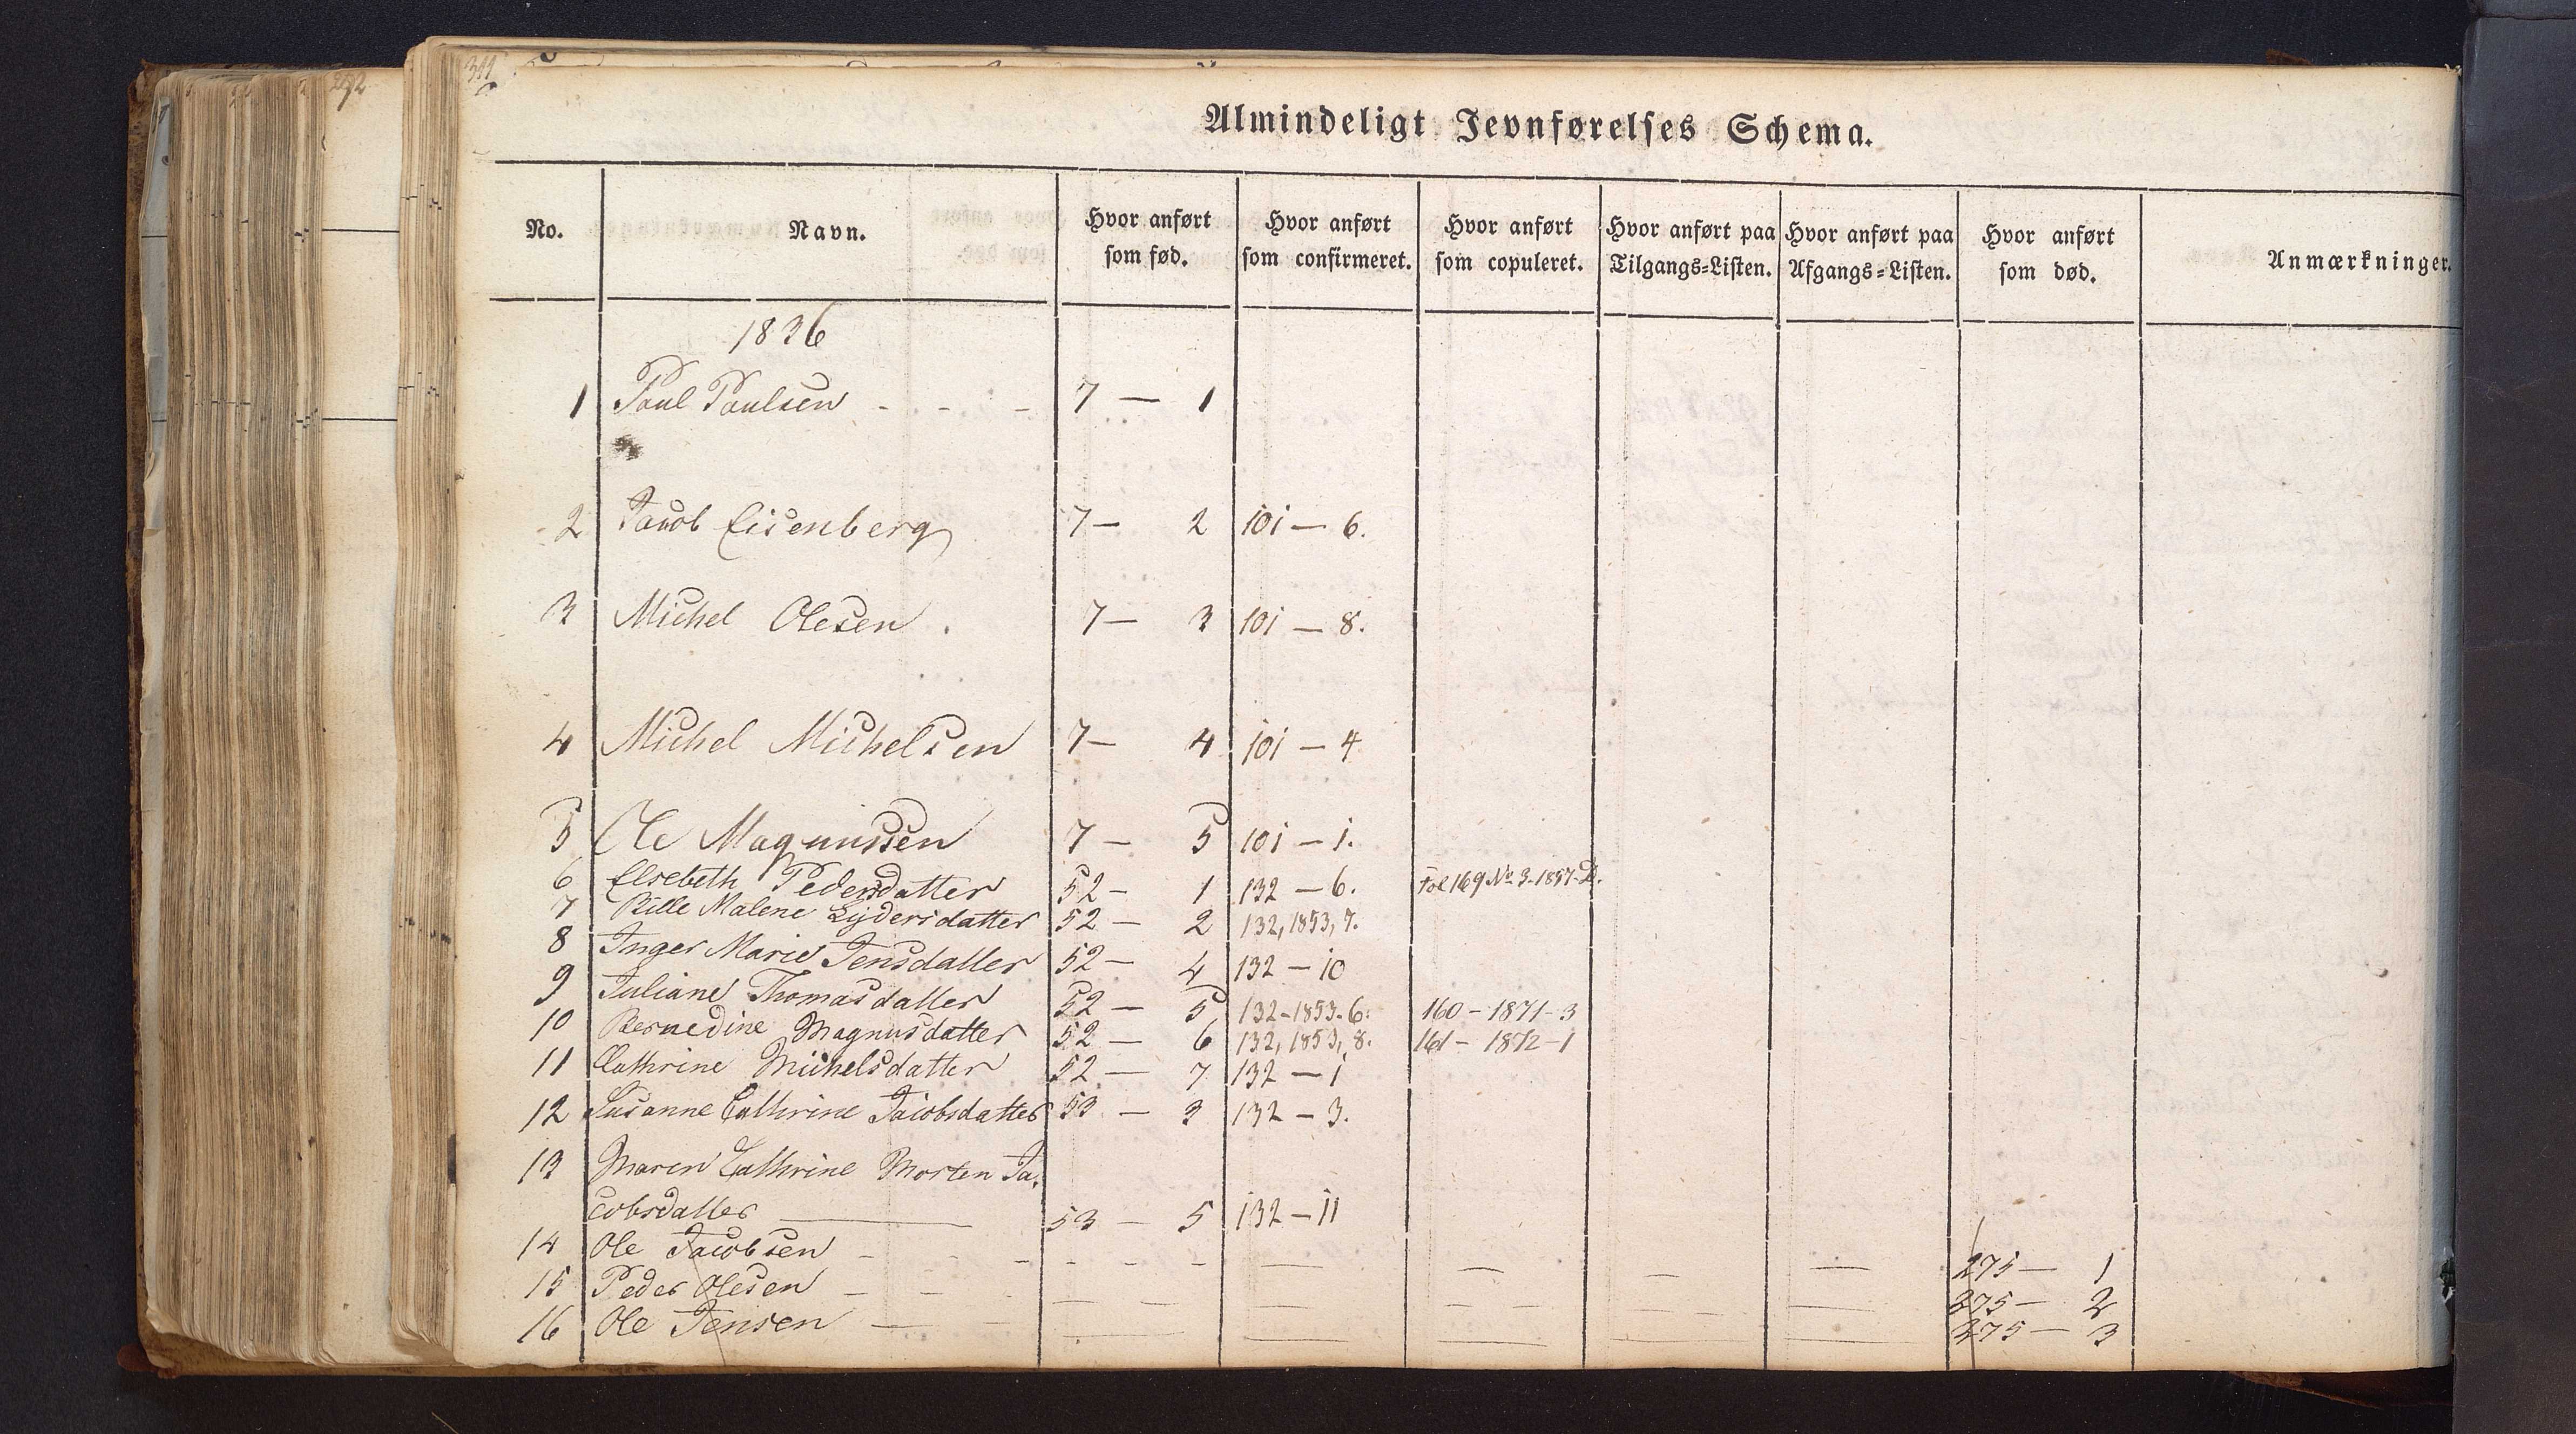 311
Almindeligt Jevnførelses Schema.
No. Navn. Hvor anført som fød. Hvor anført som confirmeret. Hvor anført som copuleret. Hvor anført paa Tilgangs=Listen. Hvor anført paa Afgangs=Listen. Hvor anført som død. Anmærkninger.
1836
1 Poul Poulsen - - - 7 — 1
2 Jacob Eisenberg 7 — 2 101 — 6.
3 Michel Olesen . 7 — 3 101 — 8.
4 Michel Michelsen 7 — 4 101 — 4
5 Ole Magnussen 7 — 5 101 — 1.
6 Elsebeth Pedersdatter 52 — 1 132 — 6. Fol 169 No 3-1857-
7 Bille Malene Lydersdatter 52 — 2 132, 1853, 7.
8 Inger Marie Jensdatter 52 — 4 132 — 10
9 Juliane Thomasdatter 52 — 5 132-1853-6. 160 - 1871-3
10 Bernedine Magnusdatter 52 — 6 132, 1853, 8. 161 - 1872-1
11 Cathrine Michelsdatter 52 — 7 132 — 1
12 Susanne Cathrine Jacobsdatter 53 — 3 132 — 3.
13 Maren Cathrine Morten Ja-
cobsdatter — 53 — 5 132 — 11
14 Ole Jacobsen - - - - - - — — — — 275 — 1
15 Peder Olesen - - - — — — — — — — 275 — 2
16 Ole Jensen — - - — — — — — 275 — 3